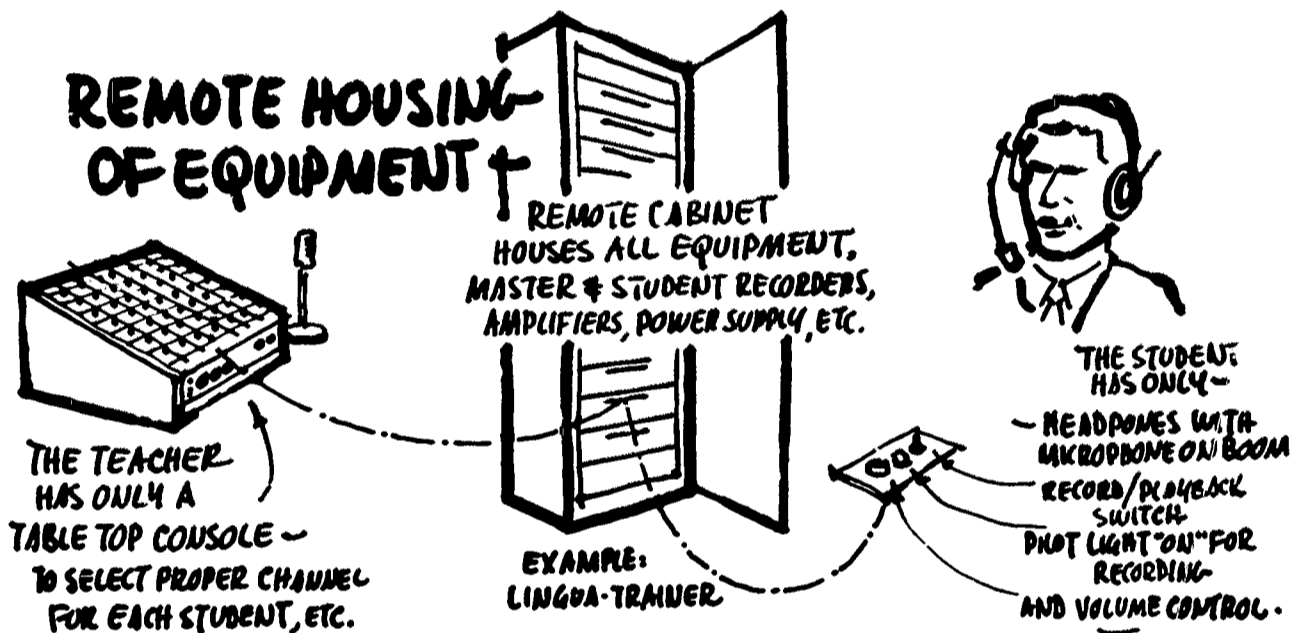 REMOTE HOUSING
OF EQUIPMENT
REMOTE CABINET
HOUSES ALL EQUIPMENT,
MASTER & STUDENT RECORDERS,
AMPLIFIERS, POWER SUPPLY, ETC.
THE TEACHER
HAS ONLY A
TABLE TOP CONSOLE –
TO SELECT PROPER CHANNEL
FOR EACH STUDENT, ETC.
EXAMPLE:
LINGUA-TRAINER
THE STUDENT
HAS ONLY –
– HEADPONES WITH
MICROPBONE ON BOOM
RECORD/PLAYBACK
SWITCH
PILOT LIGHT "ON" FOR
RECORDING
AND VOLUME CONTROL.